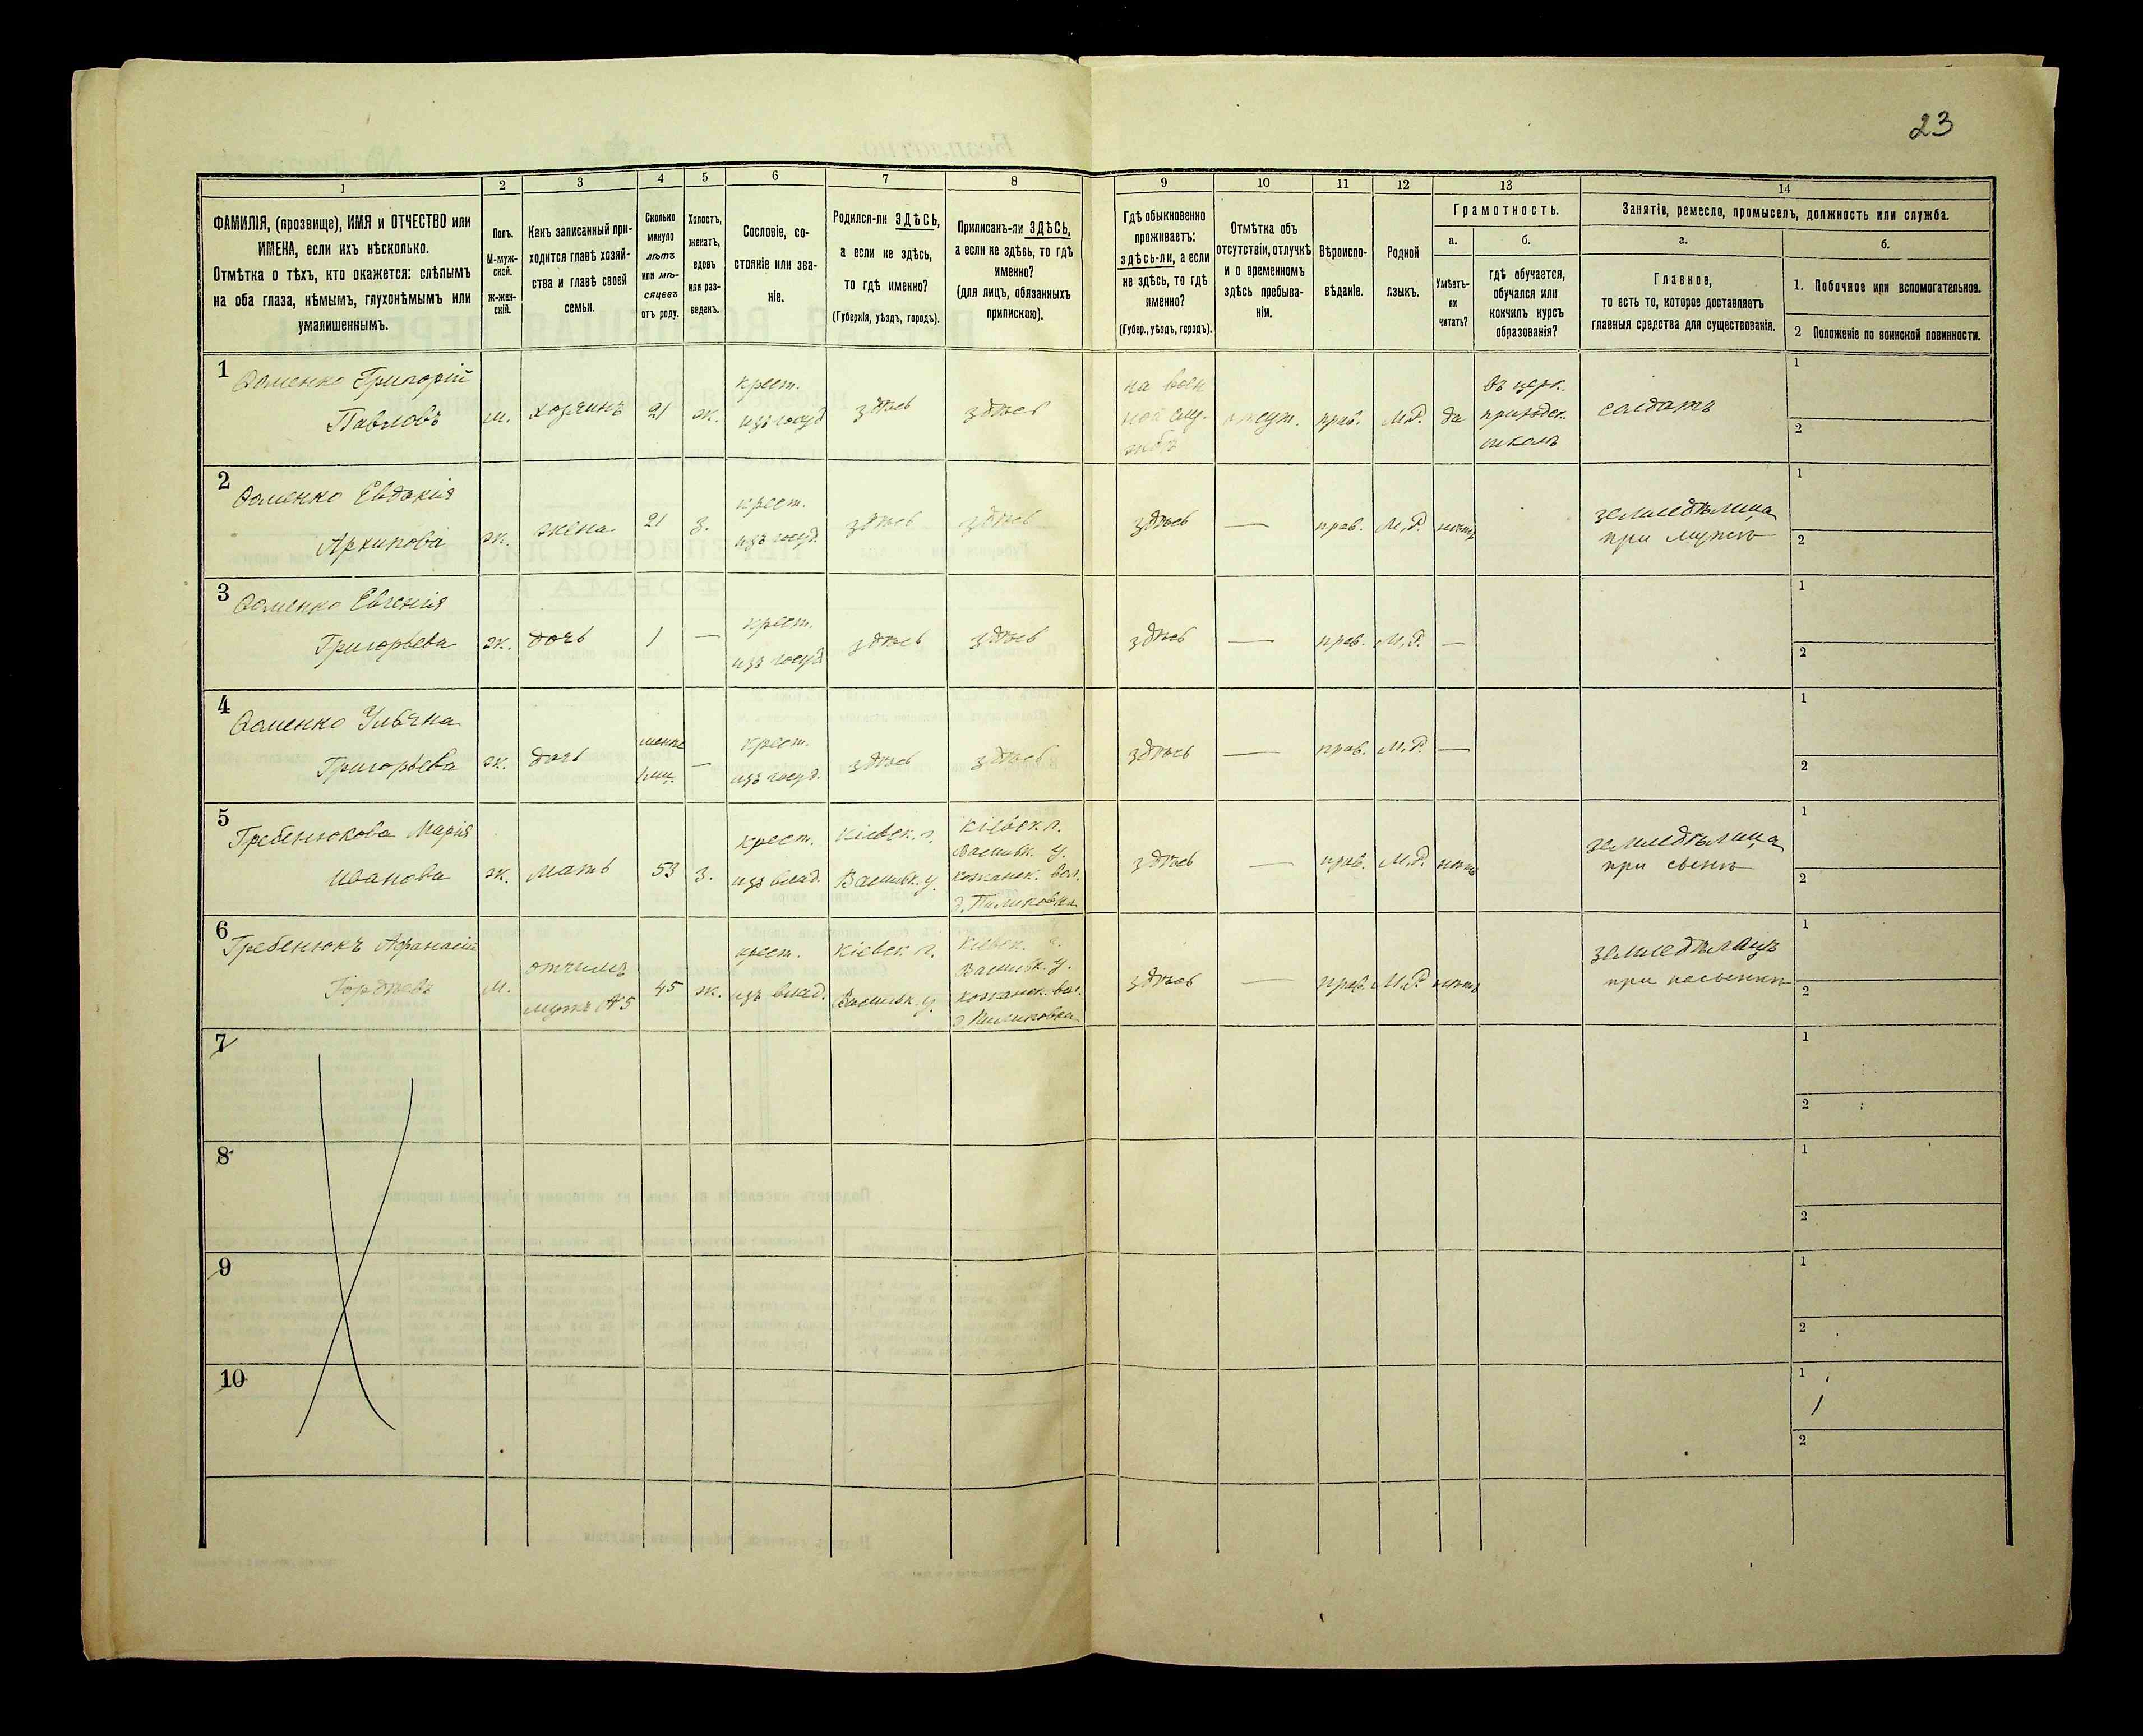 23
1
2
3
4
5
6
7
8
9
10
11
12
13
14
ФАМИЛІЯ, (прозвище), ИМЯ и ОТЧЕСТВО или
ИМЕНА, если ихъ нѣсколько.
Отмѣтка о тѣхъ, кто окажется: слѣпымъ
на оба глаза, нѣмымъ, глухонѣмымъ или
умалишеннымъ.
Полъ.
М-муж-
ской.
ж-жен-
скій.
Какъ записанный при-
ходится главѣ хозяй-
ства и главѣ своей
семьи.
Сколько
минуло
лѣтъ
или мѣ-
сяцевъ
отъ роду.
Холостъ,
женатъ,
вдовъ
или раз-
веденъ.
Сословіе, со-
стояніе или зва-
ніе.
Родился-ли ЗДѢСЬ,
а если не здѣсь,
то гдѣ именно?
(Губернія, уѣздъ, городъ).
Приписанъ-ли ЗДѢСЬ,
а если не здѣсь, то гдѣ
именно?
(для лицъ, обязанныхъ
припискою).
Гдѣ обыкновенно
проживаетъ:
здѣсь-ли, а если
не здѣсь, то гдѣ
именно?
(Губер., уѣздъ, городъ).
Отмѣтка объ
отсутствіи, отлучкѣ
и о временномъ
здѣсь пребыва-
ніи.
Вѣроиспо-
вѣданіе.
Родной
языкъ.
Грамотность.
а.
Умѣетъ-
ли
читать?
б.
гдѣ обучается,
обучался или
кончилъ курсъ
образованія?
Занятія, ремесло, промыселъ, должность или служба.
а.
Главное,
то есть то, которое доставляетъ
главныя средства для существованія.
б.
1. Побочное или вспомогательное.
2 Положеніе по воинской повинности.
1
Фоменко Григорій
Павловъ
м.
хозяинъ
21
ж.
крест.
изъ госуд
здѣсь
здѣсь
на воен
ной слу-
жбѣ
отсут.
прав.
М.Р.
да
въ церк.
приходск.
школѣ
солдатъ
1
2
2
Фоменко Евдокія
Архипова
ж.
жена
21
з.
крест.
изъ госуд.
здѣсь
здѣсь
здѣсь
—
прав.
М.Р.
нѣтъ
земледѣлица
при мужѣ
1
2
3
Фоменко Евгенія
Григорьева
ж.
дочь
1
—
крест.
изъ госуд
здѣсь
здѣсь
здѣсь
—
прав.
М.Р.
—
1
2
4
Фоменко Ульяна
Григорьева
ж.
дочь
менѣе
1 мц.
—
крест.
изъ госуд.
здѣсь
здѣсь
здѣсь
—
прав.
М.Р.
—
1
2
5
Гребенюкова Марія
Иванова
ж.
мать
53
з.
крест.
изъ влад.
Кіевск. г.
Васильк. у.
Кіевск г.
Васильк. у.
кожанск. вол.
д.
здѣсь
—
прав.
М.Р.
нѣтъ
земледѣлица
при сынѣ
1
2
6
Гребенюкъ Афанасій
Гордѣевъ
м.
отчимъ
мужъ №5
45
ж.
крест.
изъ влад.
Кіевск г.
Васильк. у.
Кіевск. г.
Васильк. у.
кожанск. вол.
д
здѣсь
—
прав.
М.Р.
нѣтъ
земледѣлецъ
при пасынкѣ
1
2
7
1
2
8
1
2
9
1
2
10
1
2